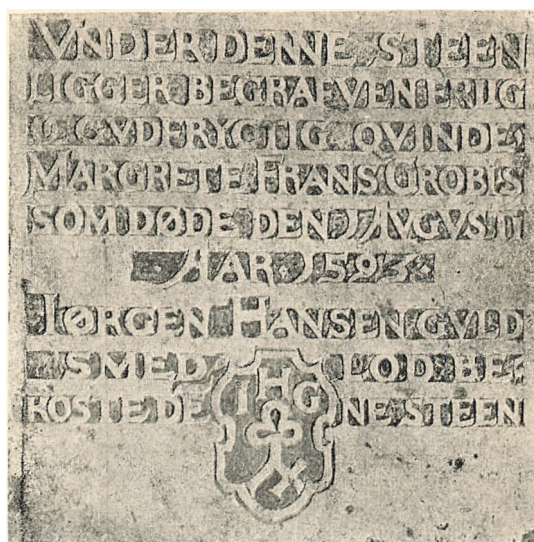 VNDER DENNE STEEN
LIGGER BEGRAEVEN ERLIG
OC GVDFRYCTIG QVINDE
MARGRETE FRANS GROBIS
SOM DØDE DEN 1 AVGVSTI
AAR 1593
IØRGEN HANSEN GVLD
SMED LOD BE
KOSTE DE NE STEEN
I H G